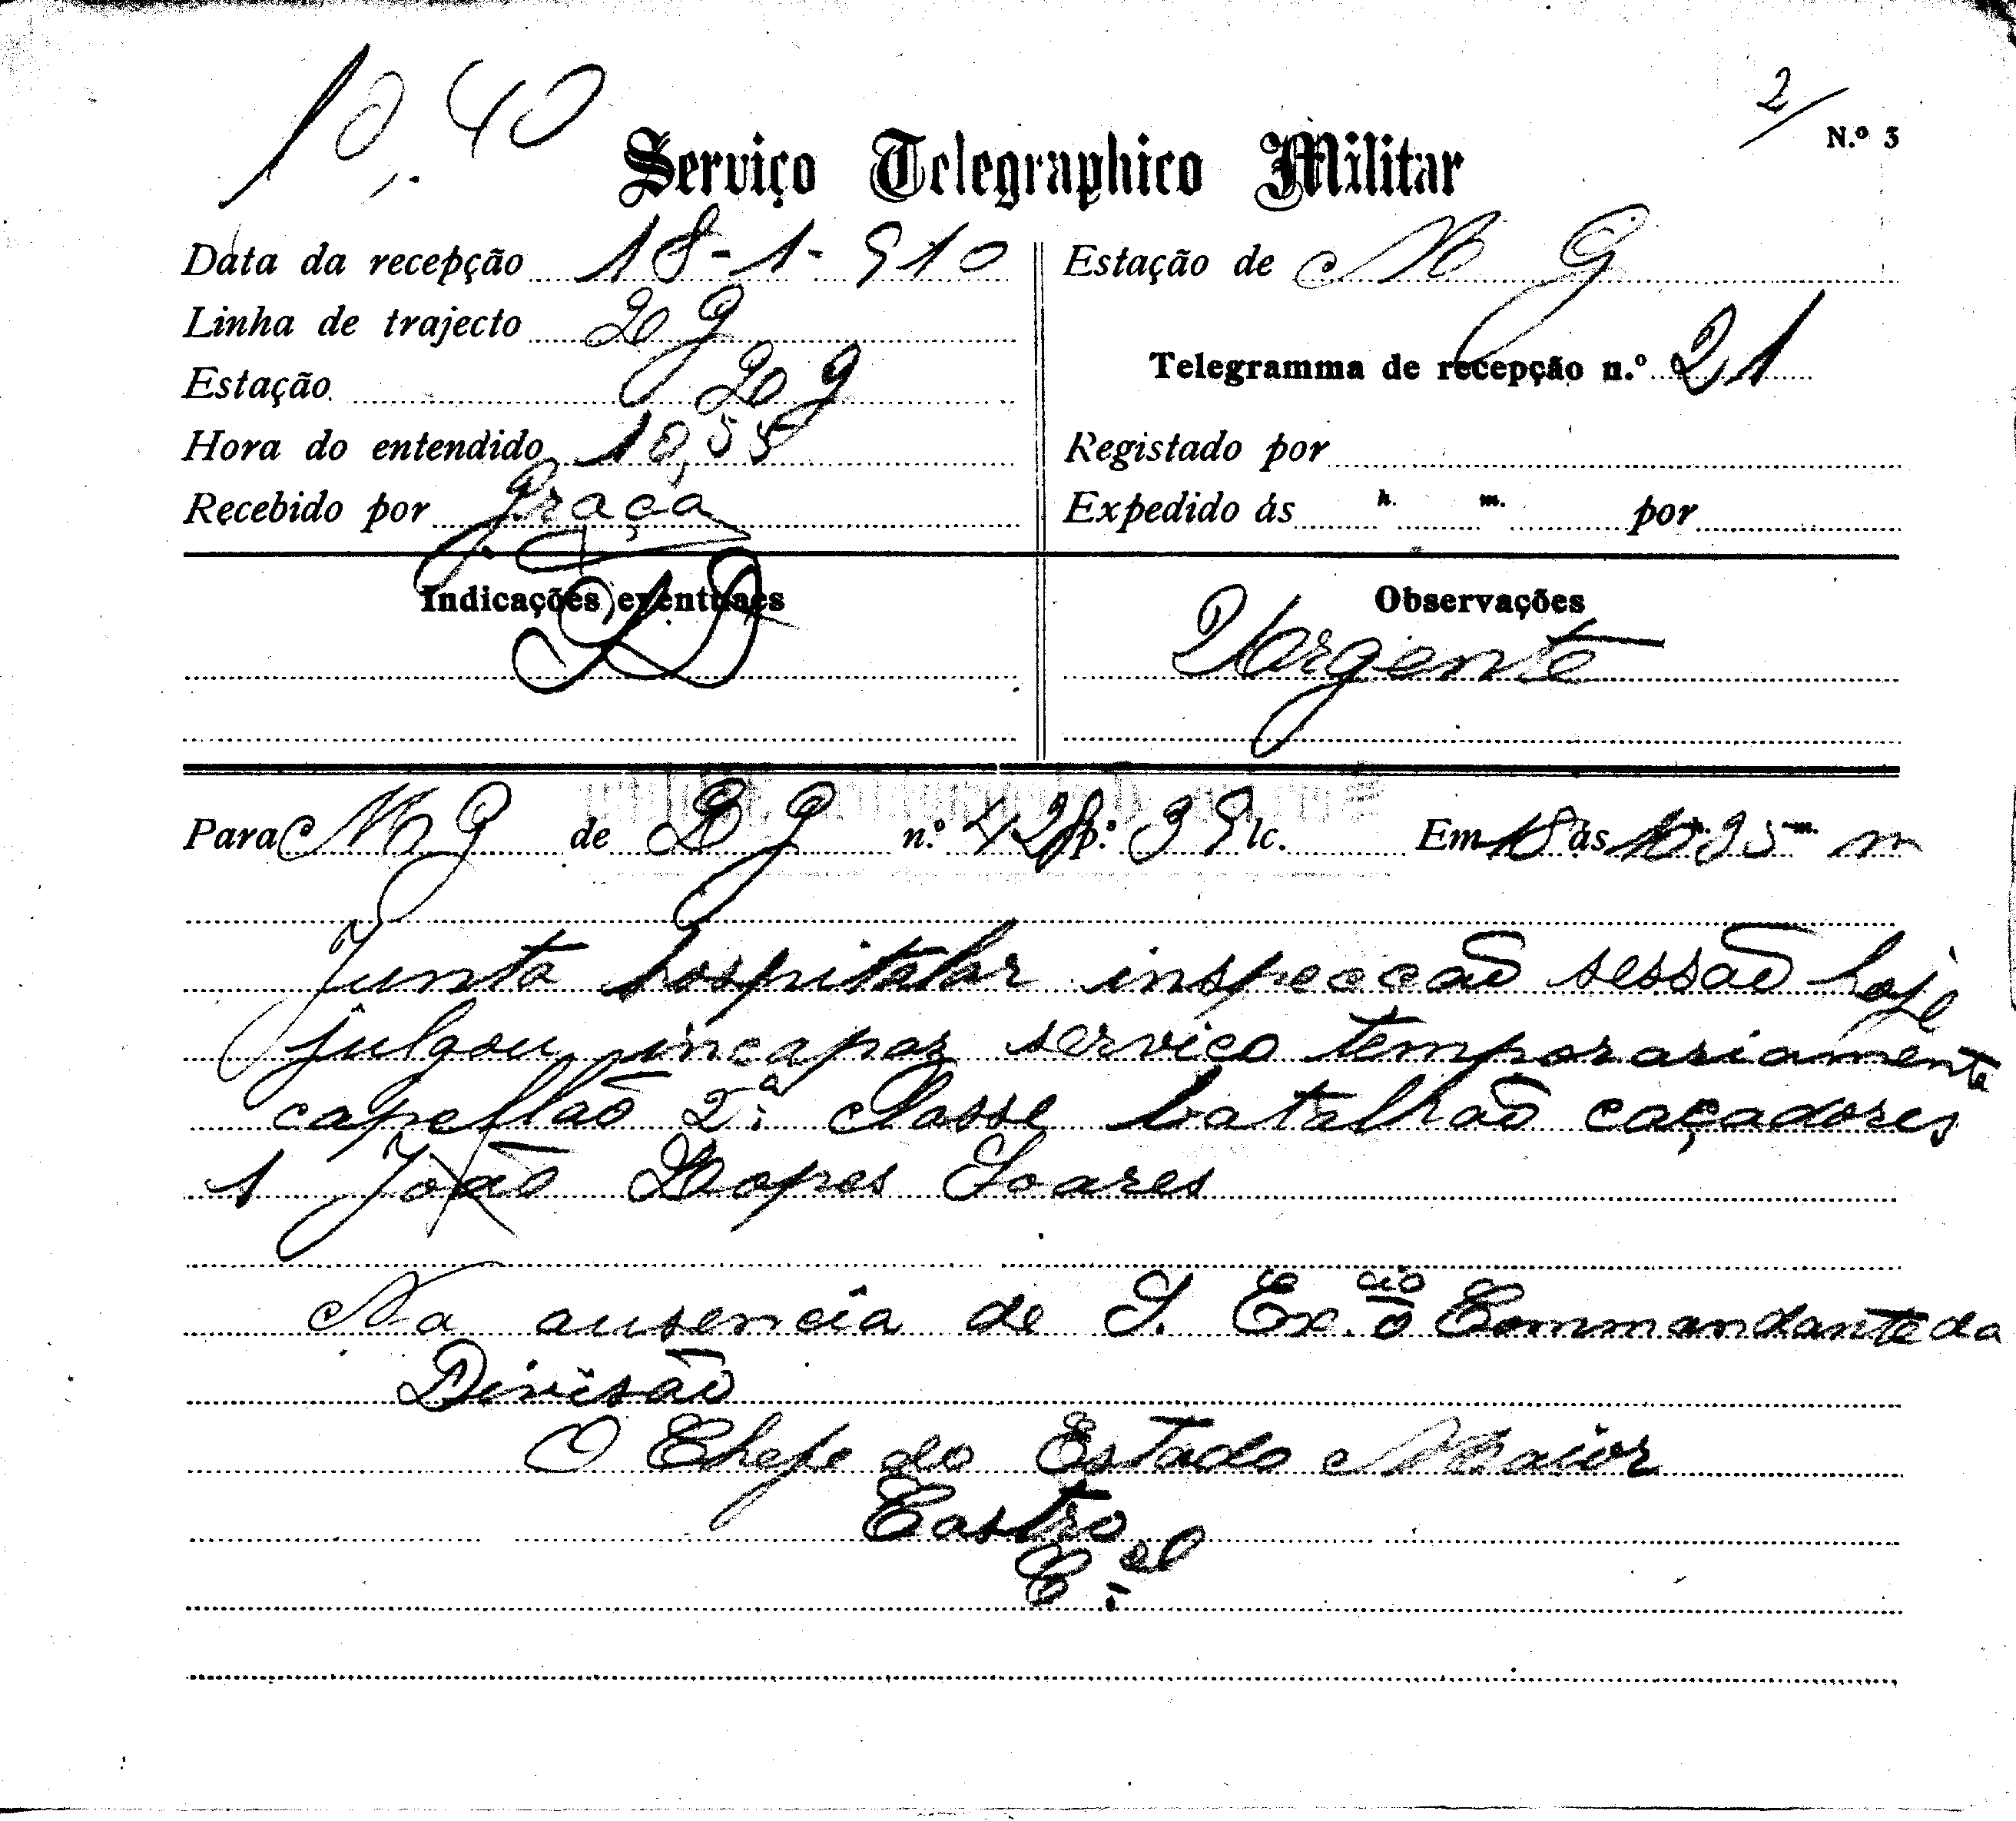 10,40
2/
N.º 3
Serviço Telegraphico Militar
Data da recepção 18-1-910
Estação de M G
Linha de trajecto D G
Estação D G
Telegramma de recepção n.º 21
Hora do entendido 10,55
Registado por
Recebido por Graça
Expedido ás h. m. por
Indicações eventuaes
Observações
Urgente
Para M G de D G n.º 428 p.º 39 lc. Em 18 ás 10 h. 35 m. m
Junta hospitalar inspecção sessão hoje
julgou incapaz serviço temporariamente
capellão 2.ª classe batalhão caçadores
1 João Lopes Soares
Na ausencia de S. Ex.cia o Commandante da
Divisão
O Chefe do Estado Maior
Castro
C.el